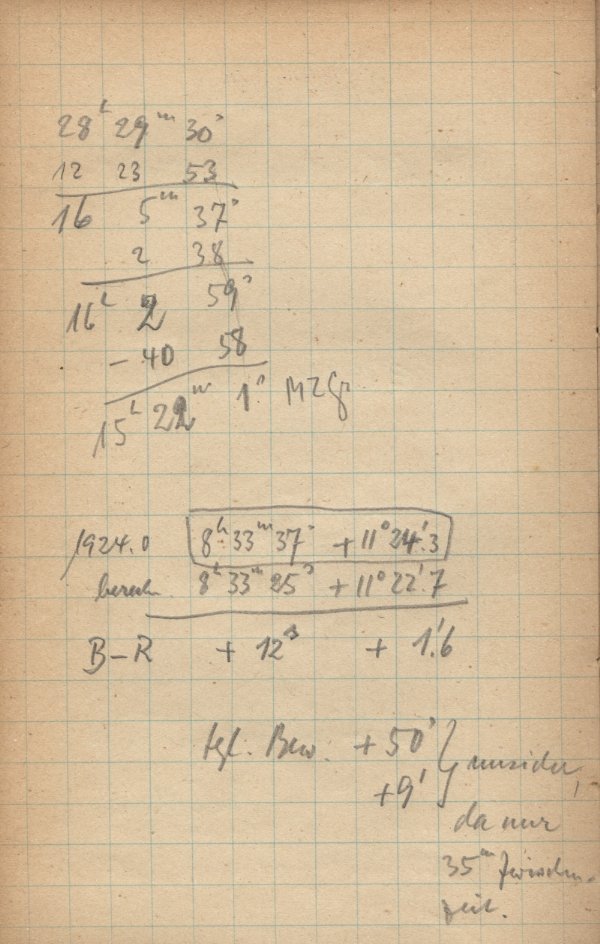 28ʰ 29ᵐ 30ˢ
12 23 53
16 5ᵐ 37ˢ
2 38
16ʰ 2 59ˢ
– 40 58
15ʰ 22ᵐ 1ˢ MZGr
1924.0 8ʰ 33ᵐ 37ˢ + 11° 24'.3
berechn. 8ʰ 33ᵐ 25ˢ + 11° 22'.7
B–R + 12ˢ + 1'.6
tgl. Bew. + 50ˢ
+ 9' } unsicher,
da nur
35ᵐ Zwischen-
zeit.